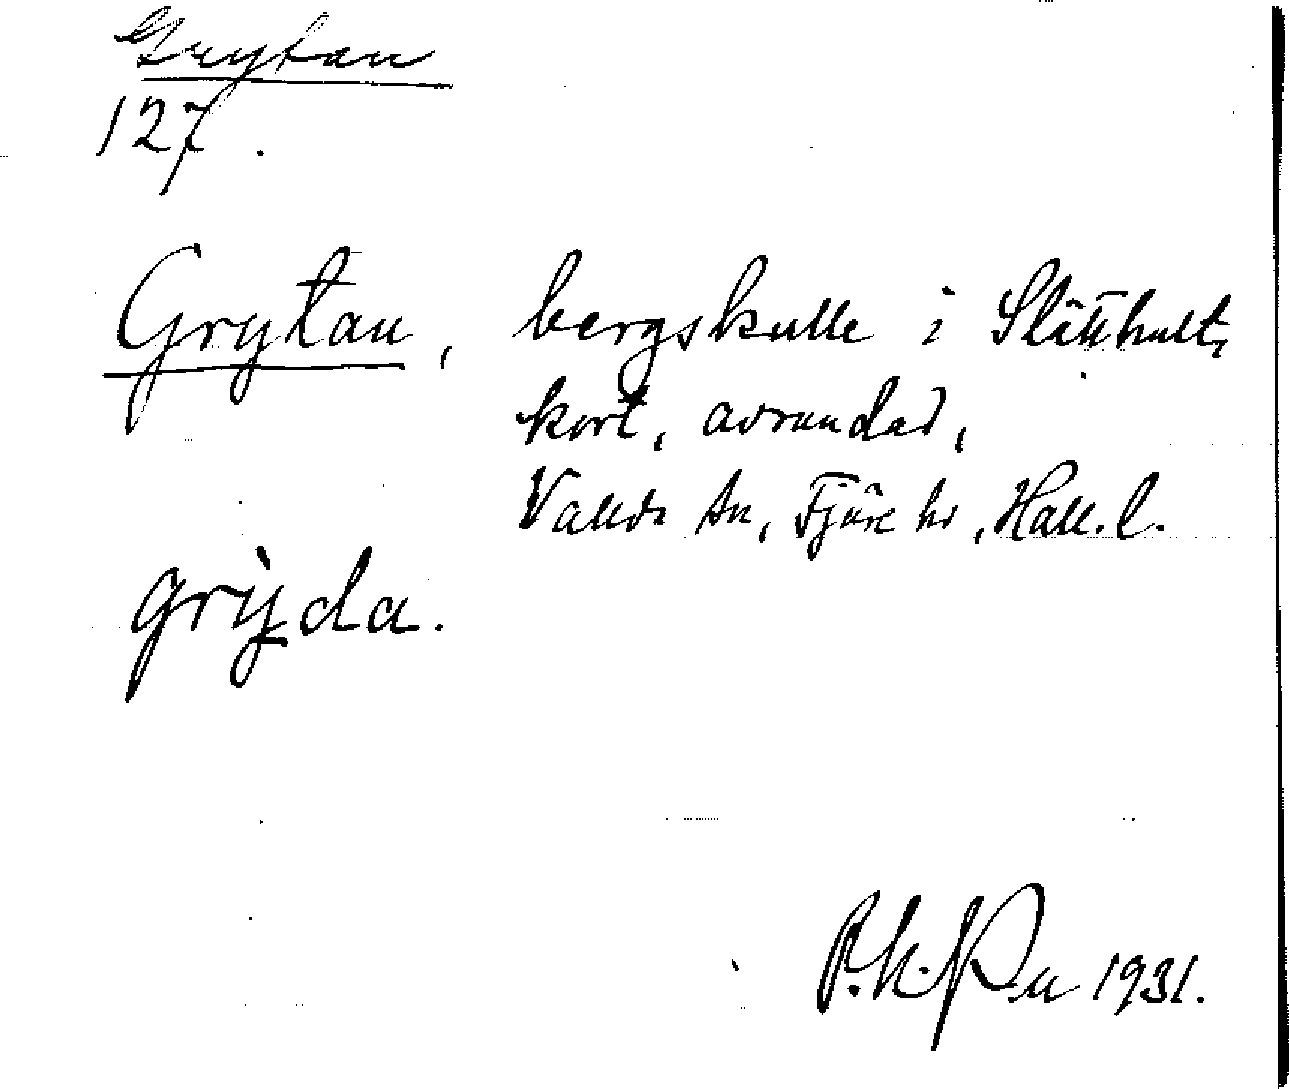 Grytan
127.
Grytan, bergskulle i Slätthult,
kort, avrundad,
Vallda sn, Fjäre hd, Hall. l.
grỳda.
1931.